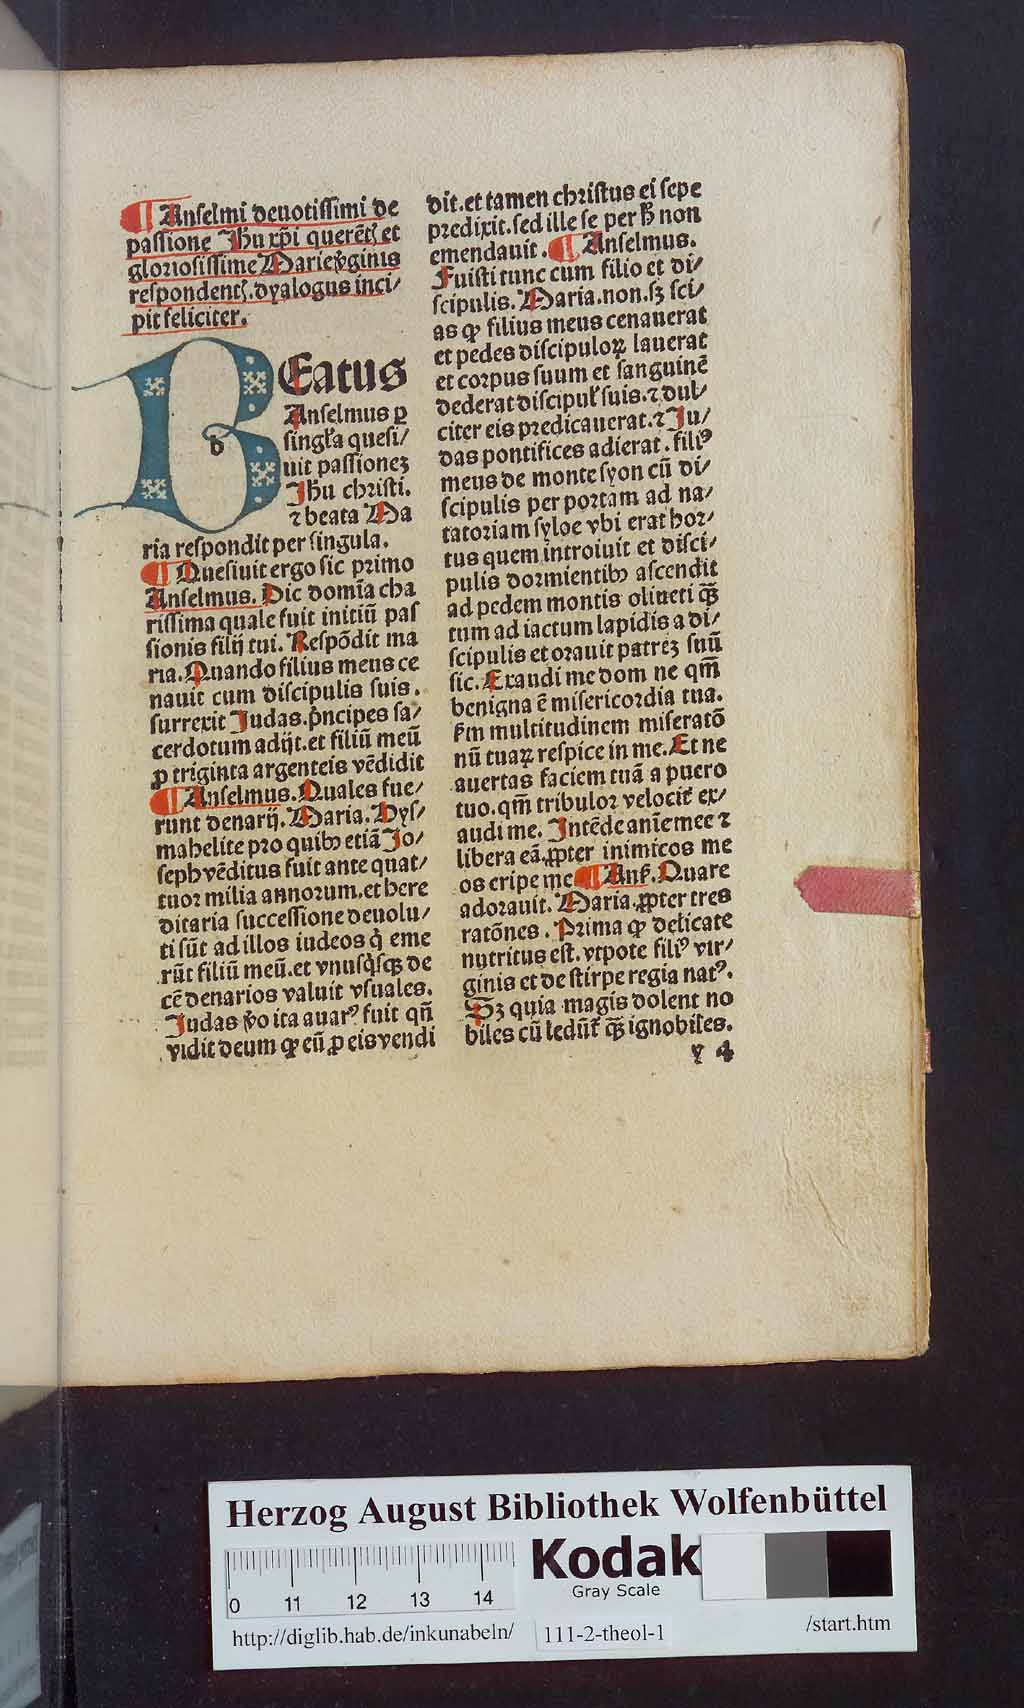 ¶ Anselmi deuotissimi de
passione Jhu xp̄i querētꝭ et
gloriosissime Marie v̓ginis
respondentꝭ. dyalogus inci⸗
pit feliciter.
BEatus
Anselmus ꝑ
singl̓a quesi⸗
uit passionez
Jhu christi.
⁊ beata Ma
ria respondit per singula.
¶ Quesiuit ergo sic primo
Anselmus. Dic domīa cha
rissima quale fuit initiū pas
sionis filij tui. Respōdit ma
ria. Quando filius meus ce
nauit cum discipulis suis.
surrexit Judas. p̓ncipes sa⸗
cerdotum adijt. et filiū meū
ꝓ triginta argenteis vēdidit
¶ Anselmus. Quales fue⸗
runt denarij. Maria. Dys⸗
mahelite pro quibꝰ etiā Jo⸗
seph vēditus fuit ante quat⸗
tuor milia annorum. et here
ditaria successione deuolu⸗
ti sūt ad illos iudeos q̓ eme
rūt filiū meū. et vnusq̓sqꝫ de
cē denarios valuit vsuales.
Judas v̓o ita auarꝰ fuit qn̄
vidit deum ꝙ eū ꝓ eis vendi
dit. et tamen christus ei sepe
predixit. sed ille se per h̓ non
emendauit. ¶ Anselmus.
Fuisti tunc cum filio et di⸗
scipulis. Maria. non. sꝫ sci⸗
as ꝙ filius meus cenauerat
et pedes discipuloꝝ lauerat
et corpus suum et sanguinē
dederat discipul̓ suis. ⁊ dul⸗
citer eis predicauerat. ⁊ Ju⸗
das pontifices adierat. filiꝰ
meus de monte syon cū di⸗
scipulis per portam ad na⸗
tatoriam syloe vbi erat hor⸗
tus quem introiuit et disci⸗
pulis dormientibꝰ ascendit
ad pedem montis oliueti qꝫ̄
tum ad iactum lapidis a di⸗
scipulis et orauit patrez suū
sic. Exaudi me dom ne qm̄
benigna ē misericordia tua.
s̓m multitudinem miseratō
nū tuaꝝ respice in me. Et ne
auertas faciem tuā a puero
tuo. qm̄ tribulor velocit̓ ex⸗
audi me. Intēde anīe mee ⁊
libera eā. ꝓpter inimicos me
os eripe me ¶ Ans̓. Quare
adorauit. Maria. ꝓpter tres
ratōnes. Prima ꝙ delicate
nutritus est. vtpote filiꝰ vir⸗
ginis et de stirpe regia natꝰ.
Sꝫ quia magis dolent no
biles cū ledūt̓ qꝫ̄ ignobiles.
y 4
Herzog August Bibliothek Wolfenbüttel
Kodak
Gray Scale
0 11 12 13 14
http://diglib.hab.de/inkunabeln/ 111-2-theol-1 /start.htm